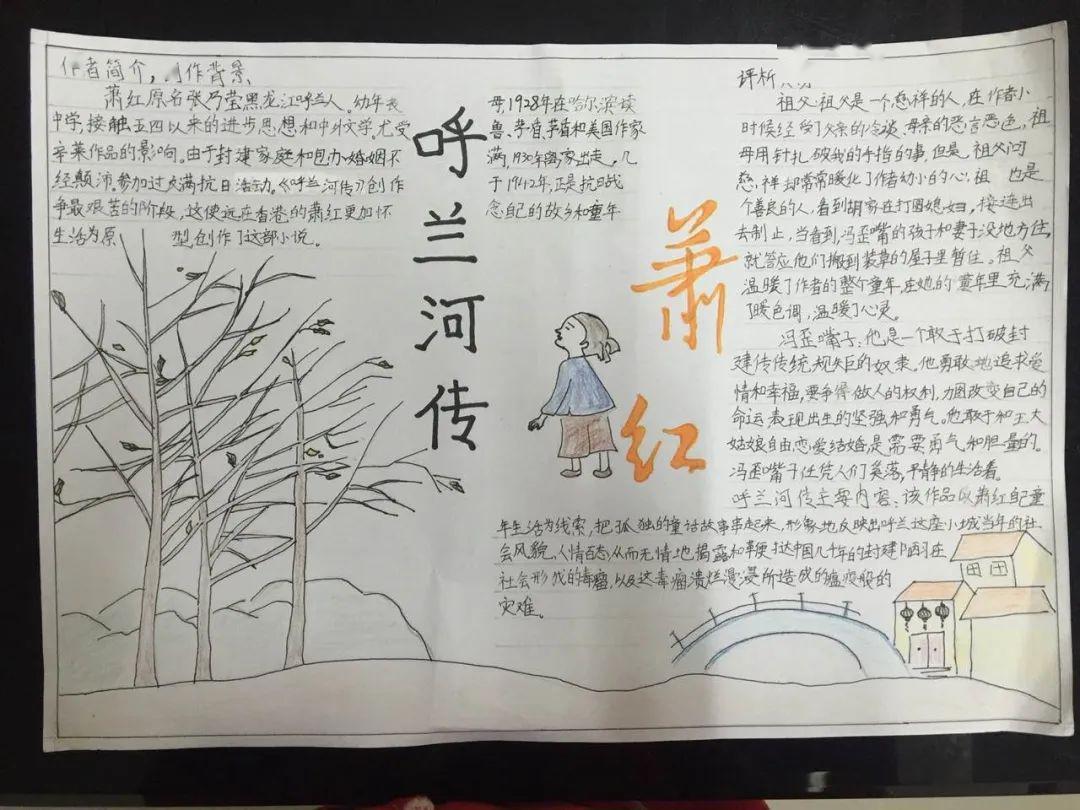 作者简介，作背景、
萧红原名张乃莹黑龙江呼兰人。幼年丧
中学，接触五四以来的进步思想和中外文学。尤受
辛莱作品的影响。由于封建家庭和包办婚姻不
经颠沛，参加过大满抗日活动。《呼兰河传》创作
争最艰苦的阶段，这使远在香港的萧红更加怀
生活为原 型，创作了这部小说。
呼兰河传
母1928年在哈尔滨读
鲁、茅盾、茅盾和美国作家
满，1930年离家出走。几
于1942年，正是抗日战
念自己的故乡和童年
萧红
评析
祖父：祖父是一个慈祥的人，在作者小
时候经受了父亲的冷谈、母亲的恶言恶色，祖
母用针扎破我的手指的事，但是，祖父问
慈，祥却常常暖化了作者幼小的心，祖 也是
个善良的人，看到胡家在打团媳妇，接连出
去制止，当看到，冯歪嘴的孩子和妻子没地方住，
就答应他们搬到装草的屋子里暂住。祖父
温暖了作者的整个童年，在她的童年里充满
了暖色调，温暖了心灵。
冯歪嘴子：他是一个敢于打破封
建传传统规矩的奴隶，他勇敢地追求爱
情和幸福，要争得做人的权利，力图改变自己的
命运表现出生的坚强和勇气。他敢于和王大
姑娘自由恋爱结婚是需要勇气和胆量的。
冯歪嘴子任凭人们奚落，平静的生活着。
呼兰河传主要内容：该作品以萧红自己童
年生活为线索，把孤独的童话故事串起来，形象地反映出呼兰这座小城当年的社
会风貌、人情百态，从而无情地揭露和鞭挞中国几千年的封建陋习在
社会形成的毒瘤，以及这毒瘤溃烂漫浸所造成的瘟疫般的
灾难。